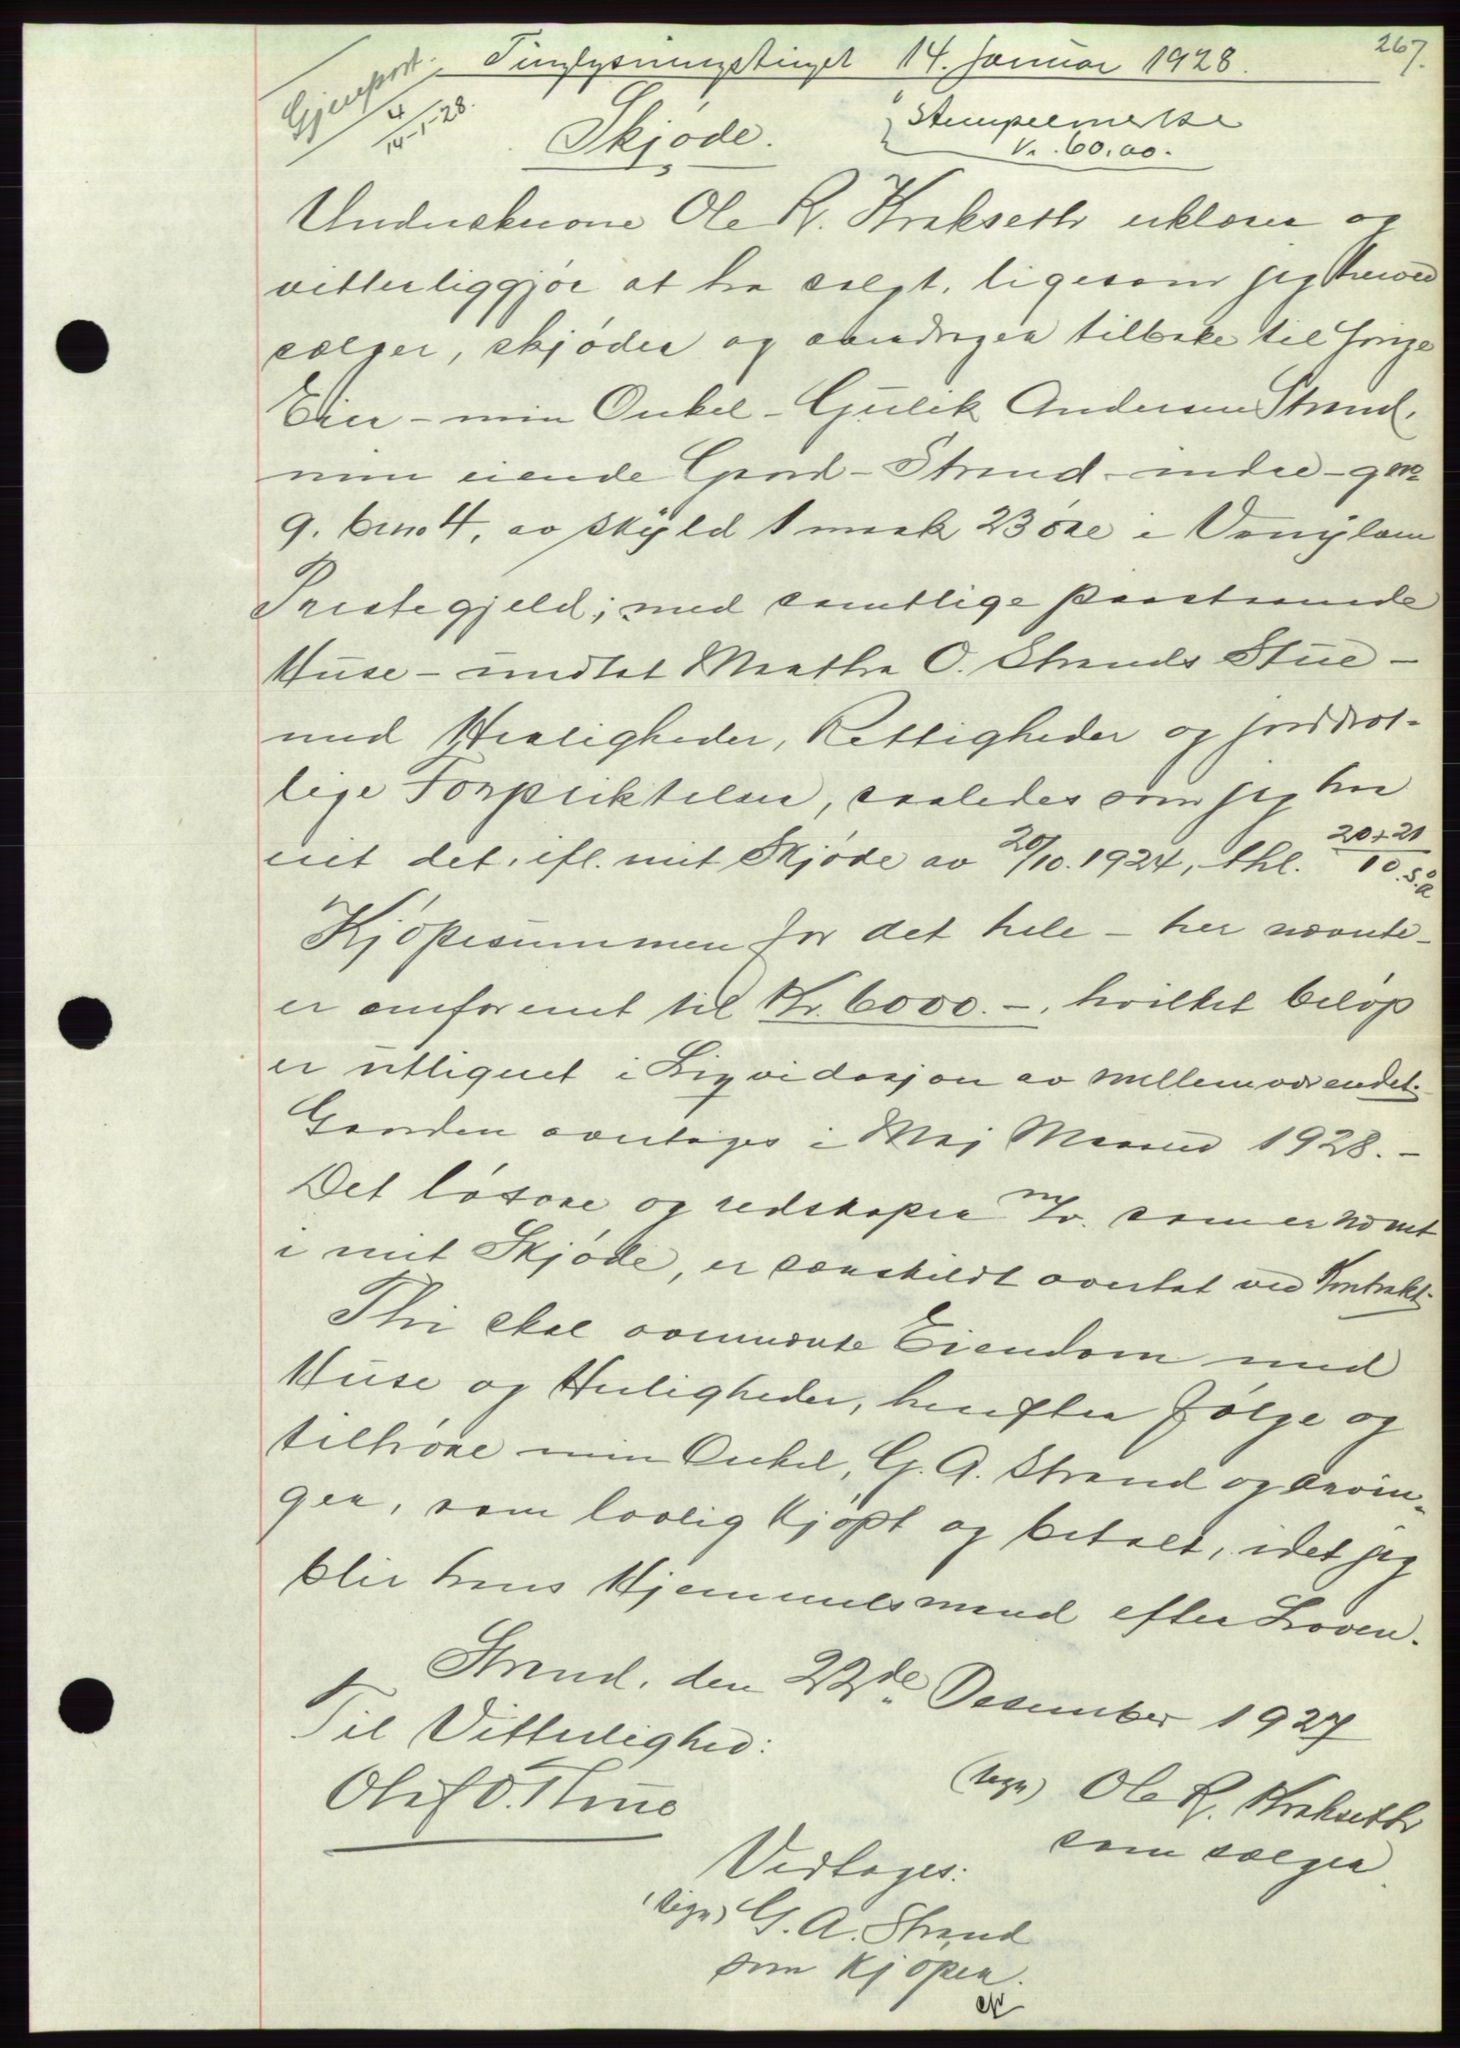 267.
Tinglysningstinget 14. januar 1928.
Gjenpart.
4
14-1-28.
Stempelmerke
Kr. 60.00.
Skjøde.
Underskrevne Ole R. Krakseth erklærer og
vitterliggjør at ha solgt, ligesom jeg herved
sælger, skjøder og overdrager tilbake til forrige
Eier – min Onkel – Gulik Andersen Strand,
min eiende Gaard – Strand – indre – gno
9. bno 4, av skyld 1 mark 23 øre i Vanylven
Prestegjeld; med samtlige paastaaende
Huse – undtat Martha O. Strands Stue –
med Herligheder, Rettigheder og jorddrot-
lige Forpliktelser, saaledes som jeg har
eiet det, ifl. mit Skjøde av 20/10. 1924, thl. 20+21/10 s. a.
Kjøpesummen for det hele – her nævnte –
er omforenet til Kr. 6000.–, hvilket beløp
er utlignet i Liqvidasjon av mellemværendet.
Gaarden overtages i Maj Maaned 1928. –
Det løsøre og redskaper m/v. som er nævnt
i mit Skjøde, er særskildt overtat ved Kontrakt.
Thi skal ovennævnte Eiendom med
Huse og Herligheder, herefter følge og
tilhøre min Onkel, G. A. Strand og arvin-
ger, som lovlig kjøpt og betalt, idet jeg
blir hans Hjemmelsmand efter Loven.
Strand, den 22de Desember 1927
Til Vitterlighed:
(sign) Ole R. Krakseth
Olaf O. Thue
som sælger.
Vedtages:
(sign) G. A. Strand
som kjøper.